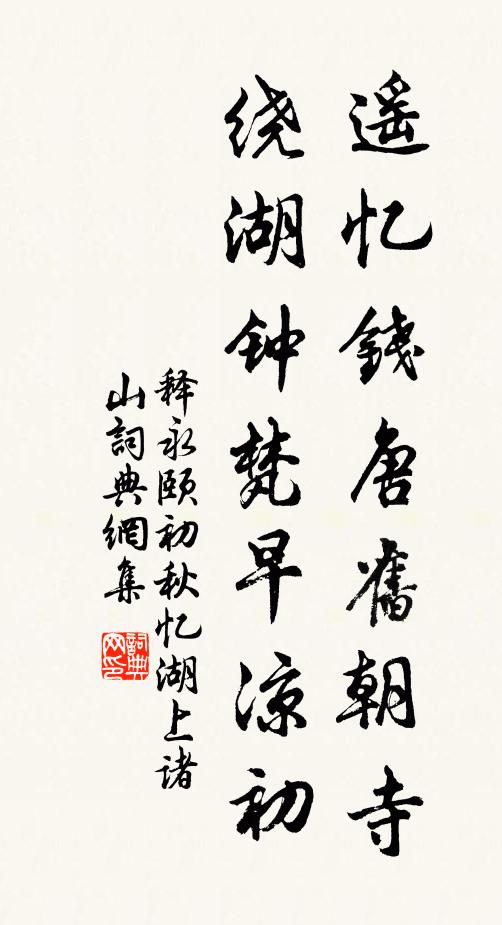 遥忆錢唐舊朝寺
绕湖钟梵早凉初
释永颐初秋忆湖上诸
山詞典網集
詞典网印